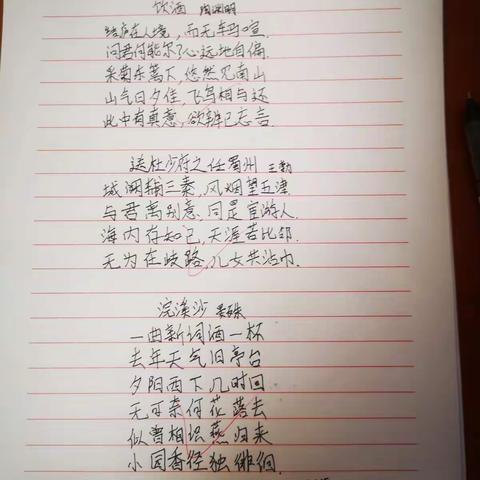 饮酒 陶渊明
结庐在人境，而无车马喧.
问君何能尔了心远地自偏.
采菊东篱下，悠然见南山
山气日夕佳，飞鸟相与还
此中有真意，欲辨已忘言.
送杜少府之任蜀州 王勃
城阙辅三秦，风烟望五津.
与君离别意，同是宦游人.
海内存知己，天涯若比邻.
无为在歧路，儿女共沾巾.
浣溪沙 晏殊
一曲新词酒一杯
去年天气旧亭台
夕阳西下几时回
无可奈何花落去
似曾相识燕归来
小园香径独徘徊.